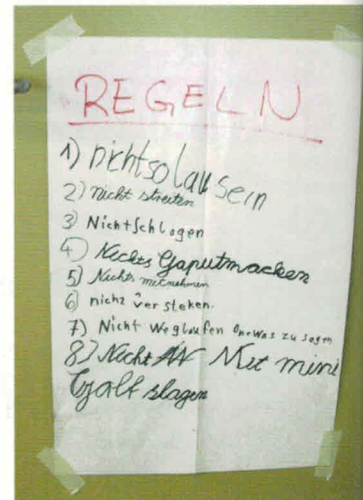 REGELN
1) nichtsolau sein
2) nicht streiten
3) Nichtschlagen
4) Nichts Gaputmachen
5) Nichts mitnehmen
6) nicht versteken.
7) Nicht Weglaufen one was zu sagen
8) Nicht Mit mini
Golf slagen